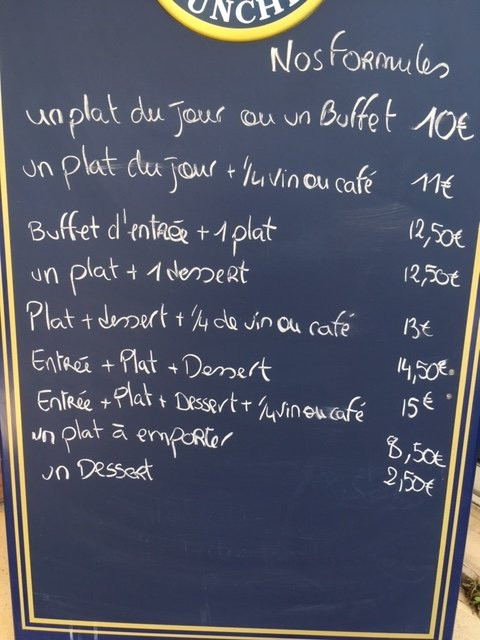 UNCH
Nos Formules
un plat du jour ou un Buffet 10€
un plat du jour + 1/4 vin ou café 11€
Buffet d'entrée + 1 plat 12,50€
un plat + 1 dessert 12,50€
Plat + dessert + 1/4 de vin ou café 13€
Entrée + Plat + Dessert 14,50€
Entrée + Plat + Dessert + 1/4 vin ou café 15€
un plat à emporter 8,50€
un Dessert 2,50€